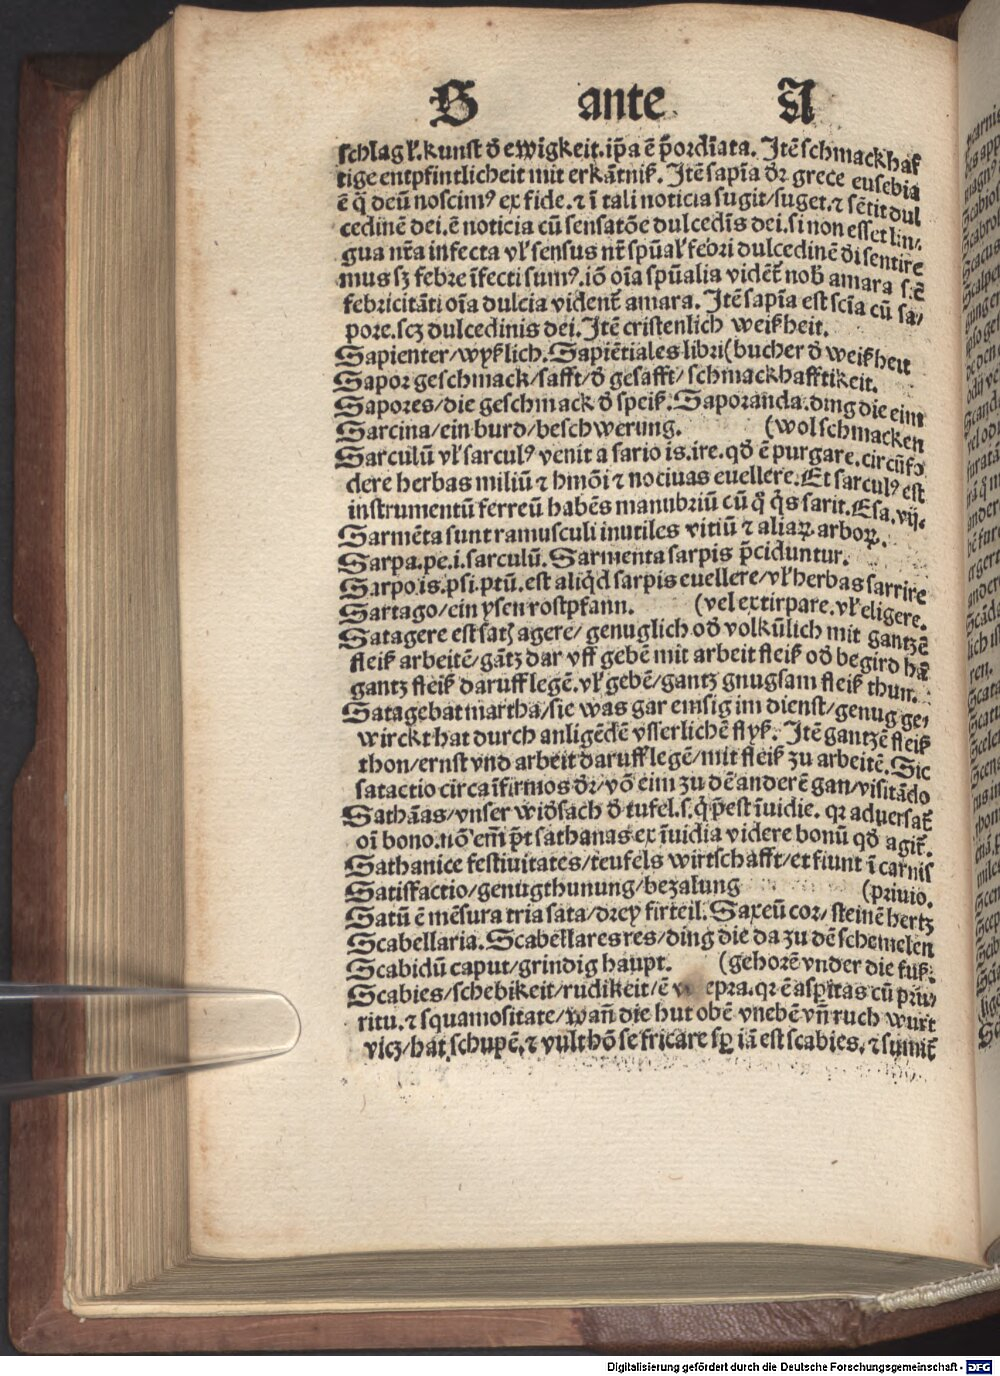 S ante A
schlag vł. kunst d̄ ewigkeit. ip̄a ē p̄ordīata. Itē schmackhaf
tige entpfintlicheit mit erkātniß. Itē sapīa dr̄ grece eusebia
ē q̄ deū noscimꝰ ex fide. ⁊ ī tali noticia sugit/suget. ⁊ sētit dul
cedinē dei. ē noticia cū sensatōe dulcedīs dei. si non esset lin⸗
gua nr̄a infecta vł sensus nr̄ spūal̄ febri dulcedinē di sentire
mus sꝫ febre īfecti sumꝰ. iō oīa spūalia vidēt̄ nob̄ amara s. ē
febricitāti oīa dulcia vident̄ amara. Itē sapīa est scīa cū sa⸗
pore. scꝫ dulcedinis dei. Itē cristenlich weißheit.
Sapienter/wyßlich. Sapiētiales libri (bucher d̄ weißheit
Sapor geschmack/safft/d̄ gesafft/schmackhafftikeit.
Sapores/die geschmack d̄ speiß. Saporanda. ding die eim
Sarcina/ein burd/beschwerung. (wol schmacken
Sarculū vł sarculꝰ venit a sario is. ire. qd̄ ē purgare. circūfo
dere herbas miliū ⁊ hmōi ⁊ nociuas euellere. Et sarculꝰ est
instrumentū ferreū habēs manubriū cū q̄ q̇s sarit. Esa. vij.
Sarmēta sunt ramusculi inutiles vitiū ⁊ aliaꝝ arboꝝ.
Sarpa. pe. i. sarculū. Sarmenta sarpis p̄ciduntur.
Sarpo is. psi. ptū. est aliq̇d sarpis euellere/vł herbas sarrire
Sartago/ein ysen rostpfann. (vel extirpare. vł eligere.
Satagere est satꝫ agere/ genuglich od̄ volkūlich mit gantzē
fleiß arbeitē/gātz dar vff gebē mit arbeit fleiß od̄ begird hā
gantz fleiß daruff legē. vł gebē/gantz gnugsam fleiß thun.
Satagebat martha/sie was gar emsig im dienst/genug ge⸗
wirckt hat durch anligēdē vsserlichē flyß. Itē gantzē fleiß
thon/ernst vnd arbeit daruff legē/mit fleiß zu arbeitē. Sic
satactio circa īfirmos dr̄/vō eim zu dē anderē gan/visitādo
Sathāas/vnser widsach d̄ tufel. s. q̇ p̄est īuidie. qꝛ aduersat̄
oī bono. nō em̄ p̄t sathanas ex īuidia videre bonū qd̄ agit̄.
Sathanice festiuitates/teufels wirtschafft/et fiunt ī carnis
Satisfactio/genugthunung/bezalung (priuio.
Satū ē mēsura tria sata/drey firteil. Saxeū cor/ steinē hertz
Scabellaria. Scabellares res/ding die da zu dē schemelen
Scabidū caput/grindig haupt. (gehorē vnder die fuß.
Scabies/schebikeit/rudikeit/ē v epra. qꝛ ē asp̄itas cū pru⸗
ritu. ⁊ squamositate/wañ die hut obē vnebē vñ ruch wurt
vicz/hat schupē. ⁊ vult hō se fricare sꝑ iā est scabies. ⁊ sumit̄
Digitalisierung gefördert durch die Deutsche Forschungsgemeinschaft - DFG